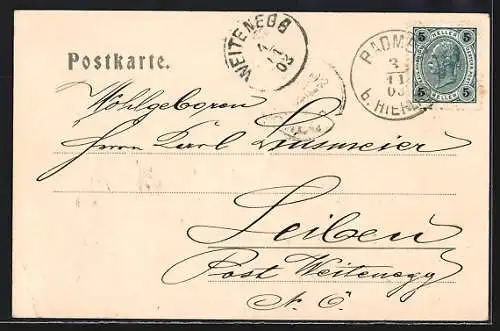 Postkarte.
WEITENEGG
4 11 03
3
11
03
b.
5 HELLER 5
5 HELLER 5
Wohlgeboren
Herrn Karl Linsmeier
Leiben
Post Weitenegg
N. Ö.